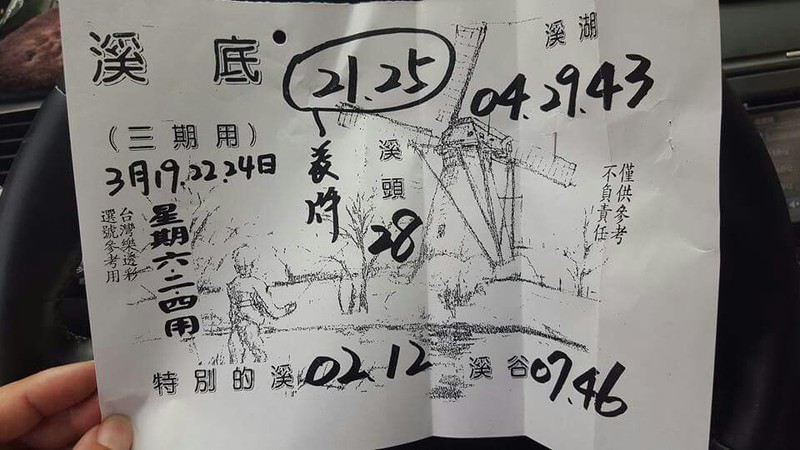 溪底
21.25
溪湖
04.29.43
(三期用)
3月19.22.24日
星期六.二.四用
台灣樂透彩
選號參考用
溪頭
28
僅供參考
不負責任
特別的溪 02.12
溪谷 07.46